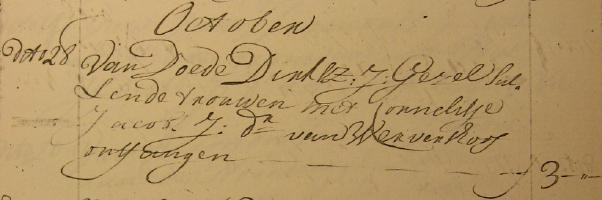 October
dito 28 Van Doede Dirksz: J: Gezel sul-
lende trouwen met Cornelisje
Jacobs. J: dr van Wervershoof
ontfangen — — — 3 - „ -